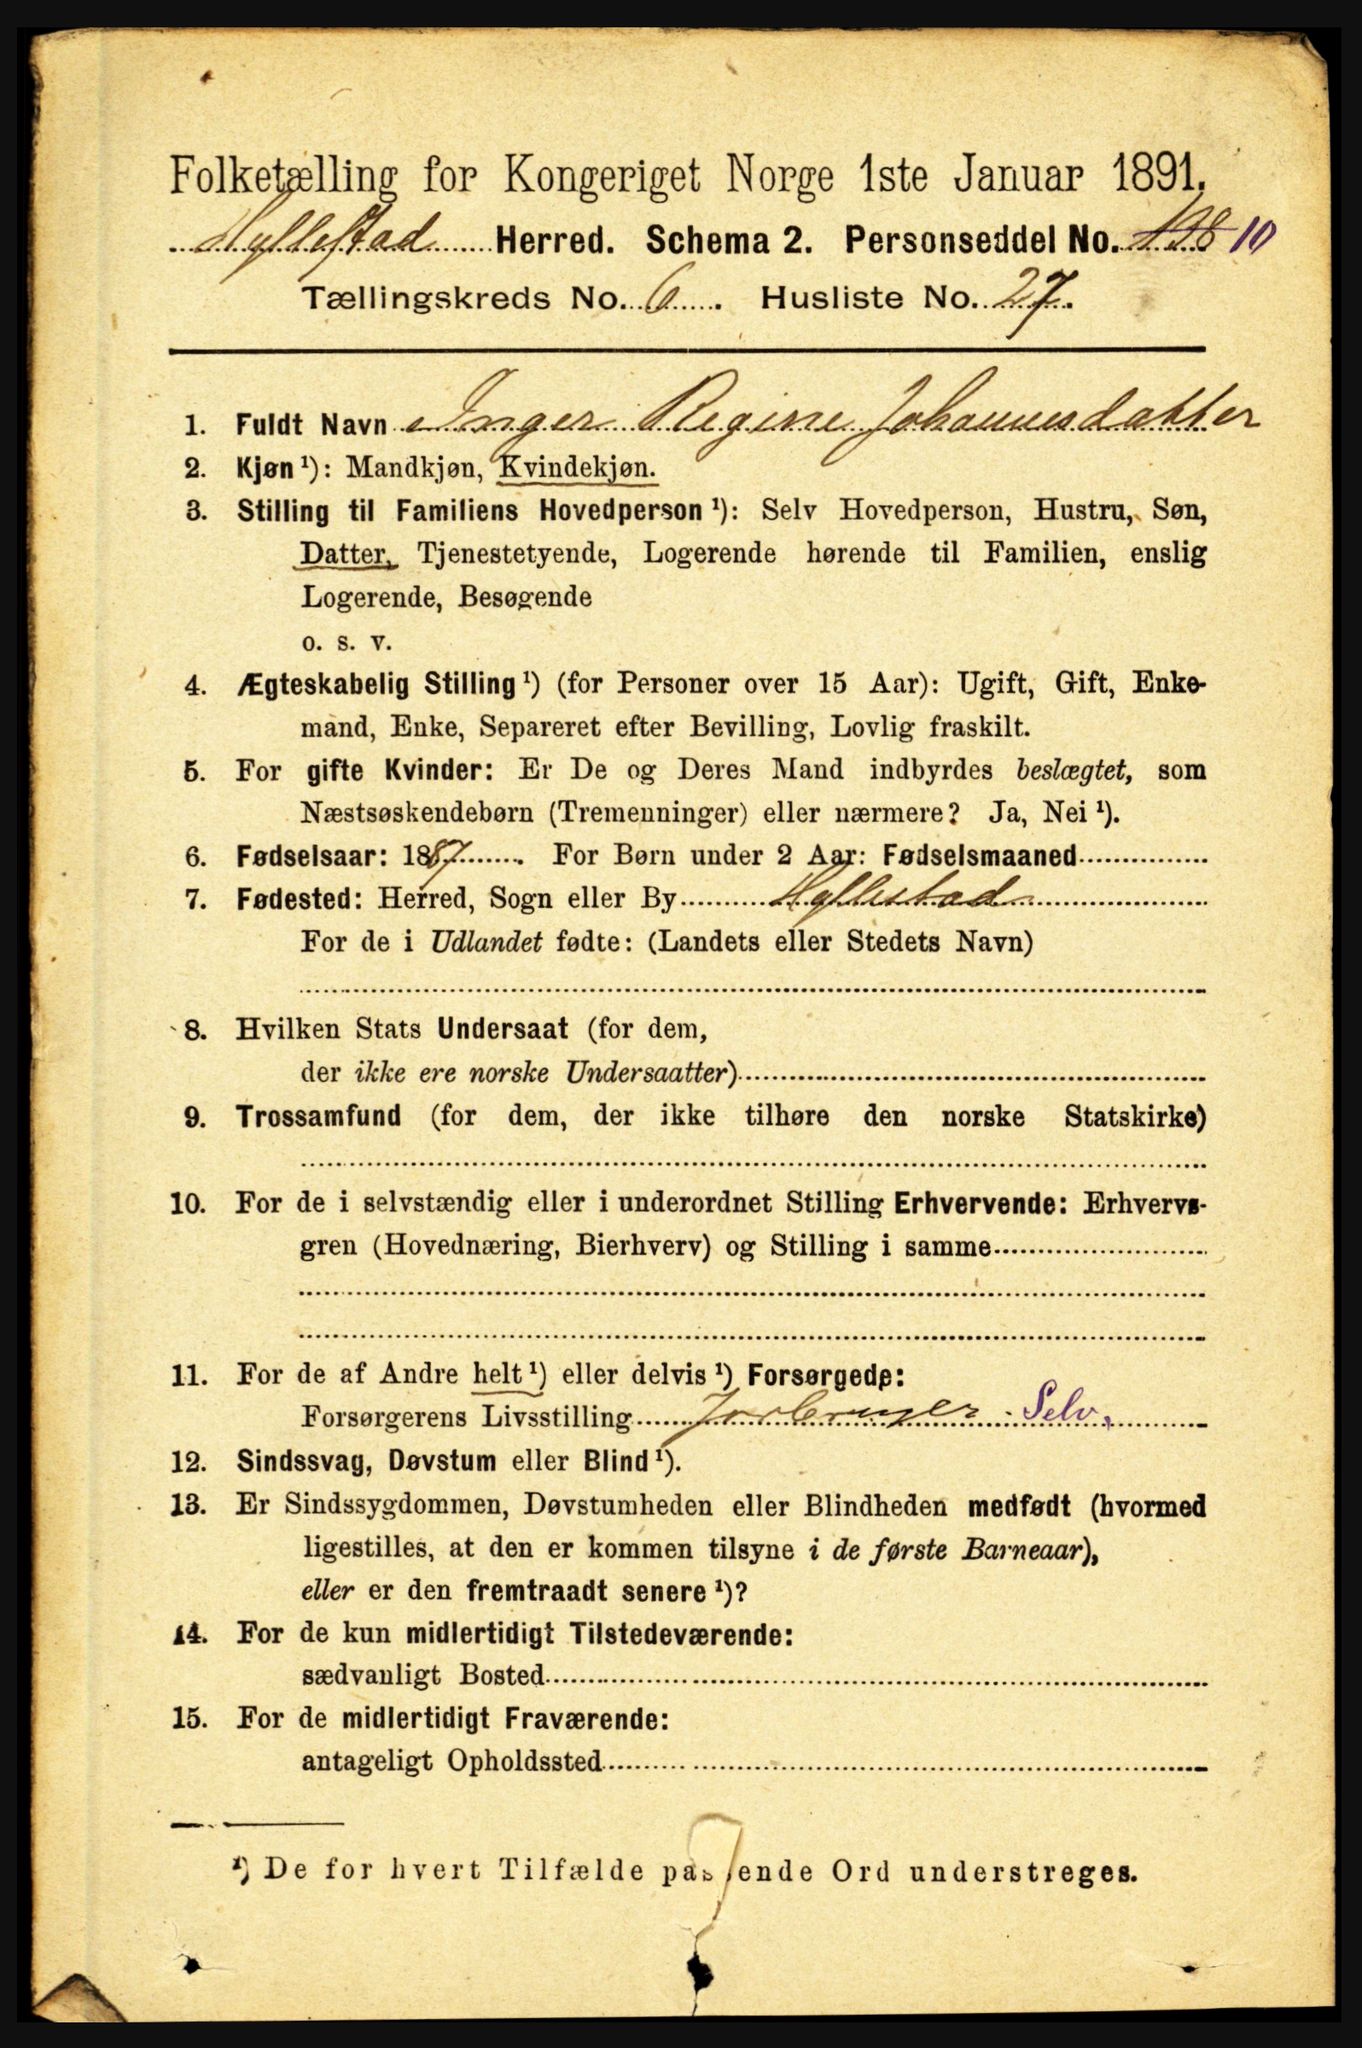 Folketælling for Kongeriget Norge 1ste Januar 1891.
Hyllestad Herred. Schema 2. Personseddel No. 138 10
Tællingskreds No. 6. Husliste No. 27.
1. Fuldt Navn Inger Regine Johannesdatter
2. Kjøn¹): Mandkjøn, Kvindekjøn.
3. Stilling til Familiens Hovedperson¹): Selv Hovedperson, Hustru, Søn,
Datter, Tjenestetyende, Logerende hørende til Familien, enslig
Logerende, Besøgende
o. s. v.
4. Ægteskabelig Stilling¹) (for Personer over 15 Aar): Ugift, Gift, Enke-
mand, Enke, Separeret efter Bevilling, Lovlig fraskilt.
5. For gifte Kvinder: Er De og Deres Mand indbyrdes beslægtet, som
Næstsøskendebørn (Tremenninger) eller nærmere? Ja, Nei¹).
6. Fødselsaar: 1887. For Børn under 2 Aar: Fødselsmaaned
7. Fødested: Herred, Sogn eller By Hyllestad
For de i Udlandet fødte: (Landets eller Stedets Navn)
8. Hvilken Stats Undersaat (for dem,
der ikke ere norske Undersaatter)
9. Trossamfund (for dem, der ikke tilhøre den norske Statskirke)
10. For de i selvstændig eller i underordnet Stilling Erhvervende: Erhvervs-
gren (Hovednæring, Bierhverv) og Stilling i samme
11. For de af Andre helt¹) eller delvis¹) Forsørgede:
Forsørgerens Livsstilling Jorbruger Selv.
12. Sindssvag, Døvstum eller Blind¹).
13. Er Sindssygdommen, Døvstumheden eller Blindheden medfødt (hvormed
ligestilles, at den er kommen tilsyne i de første Barneaar),
eller er den fremtraadt senere¹)?
14. For de kun midlertidigt Tilstedeværende:
sædvanligt Bosted
15. For de midlertidigt Fraværende:
antageligt Opholdssted
¹) De for hvert Tilfælde passende Ord understreges.